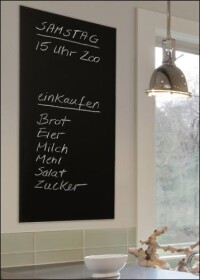 SAMSTAG
15 Uhr Zoo
einkaufen
Brot
Eier
Milch
Mehl
Salat
Zucker